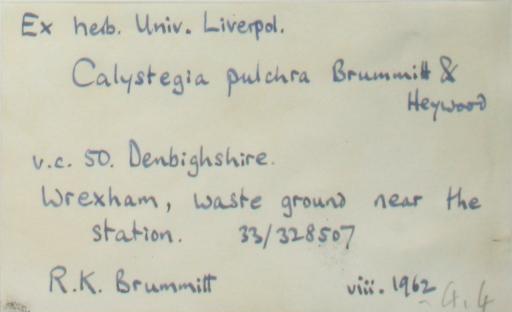 Ex herb. Univ. Liverpol.
Calystegia pulchra Brummitt &
Heywood
v.c. 50. Denbighshire.
Wrexham, waste ground near the
station. 33/328507
R.K. Brummitt viii. 1962
4.4